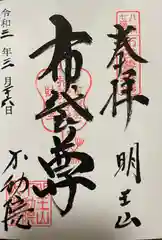 奉拝
明王山
布袋尊
令和三年三月二十八日
不動院